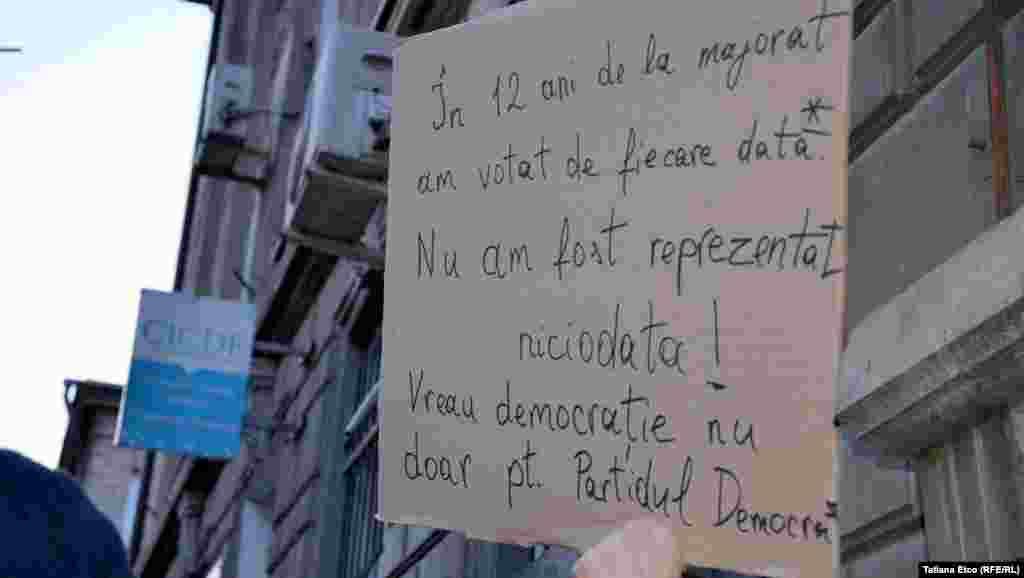 În 12 ani de la majorat
am votat de fiecare dată.*
Nu am fost reprezentat
niciodata!
Vreau democrație nu
doar pt. Partidul Democrat
CICDE
Tatiana Etco (RFE/RL)